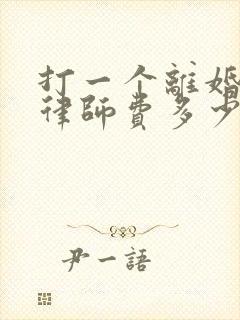 打一个離婚
律師費多少
尹一語